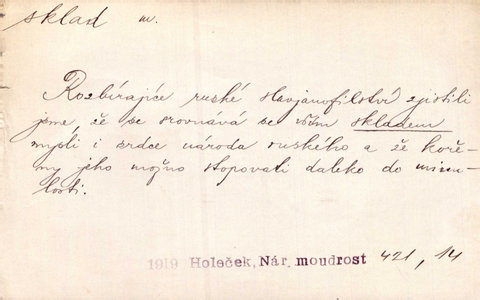 sklad m.
Rozbírajíce ruské slavjanofilství zjistili
jsme že se srovnává se vším skladem
mysli i srdce národa ruského a že koře-
ny jeho možno stopovati daleko do minu-
losti.
1919 Holeček, Nár. moudrost 421, 14